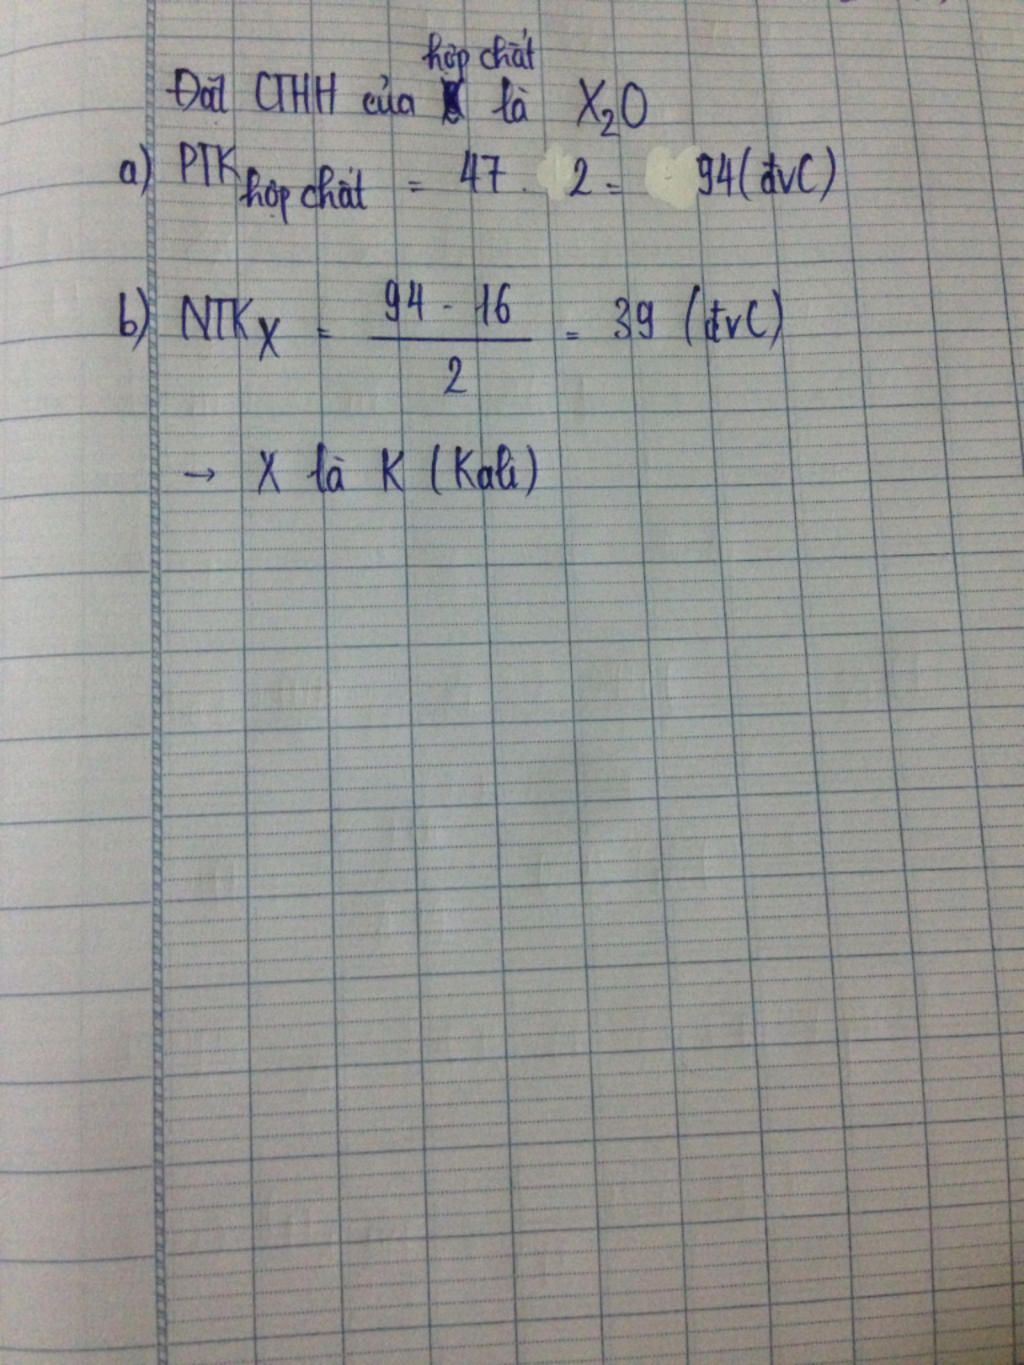 hợp chất
Đặt CTHH của là X₂O
a) PTK hợp chất = 47 . 2 = 94 (đvC)
b) NTK X = 94 - 16 / 2 = 39 (đvC)
→ X là K (Kali)